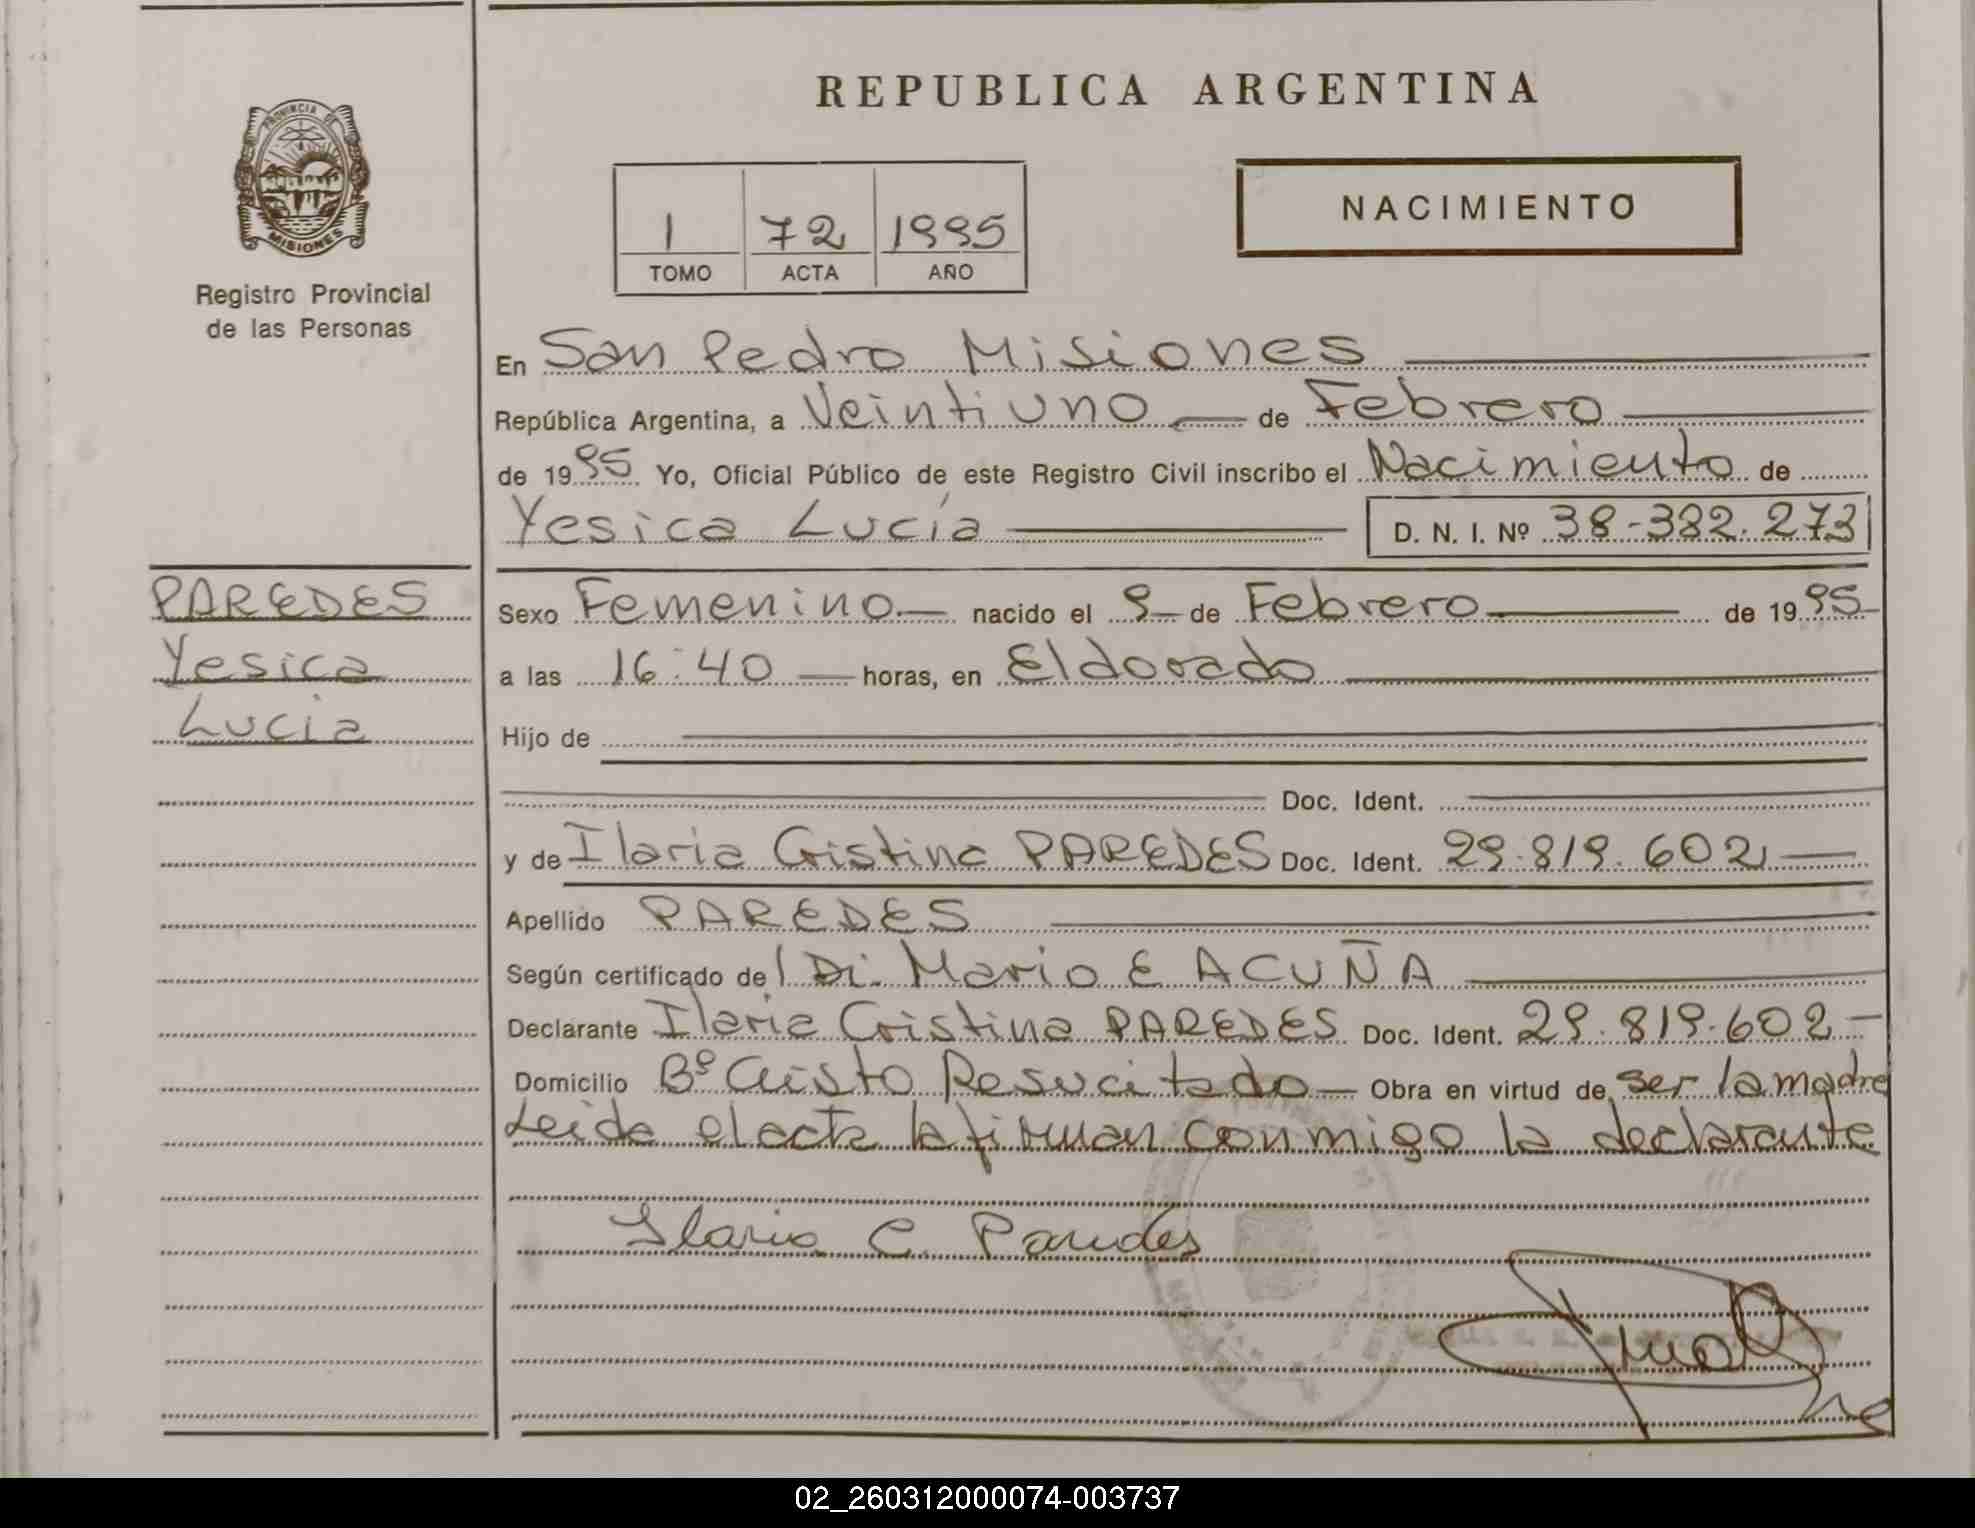 REPUBLICA ARGENTINA
PROVINCIA DE
MISIONES
Registro Provincial
de las Personas
1 72 1995
TOMO ACTA AÑO
NACIMIENTO
En San Pedro Misiones
República Argentina, a Veintiuno de Febrero
de 1995 Yo, Oficial Público de este Registro Civil inscribo el Nacimiento de
Yesica Lucía D. N. I. Nº 38-382.273
PAREDES
Yesica
Lucia
Sexo Femenino nacido el 9 de Febrero de 1995
a las 16:40 horas, en Eldorado
Hijo de
Doc. Ident.
y de Ilaria Cristina PAREDES Doc. Ident. 29.819.602
Apellido PAREDES
Según certificado del Dr. Mario E ACUÑA
Declarante Ilaria Cristina PAREDES Doc. Ident. 29.819.602
Domicilio Bº Cristo Resucitado Obra en virtud de ser la madre
Leida el acta la firman conmigo la declarante
Ilaria C. Paredes
02_260312000074-003737